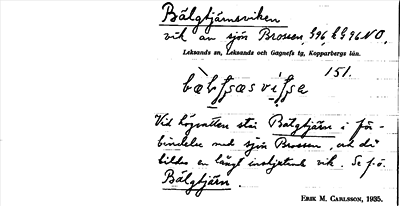 Bälgtjärnsviken
vik av sjön Brossen, G96 NO.
Leksands sn, Leksands och Gagnefs tg, Kopparbergs län.
151.
Vid högvatten står Bälgtjärn i för-
bindelse med sjön Brossen, och då
bildas en långt inskjutande vik. Se f.ö.
Bälgtjärn.
ERIK M. CARLSSON, 1935.